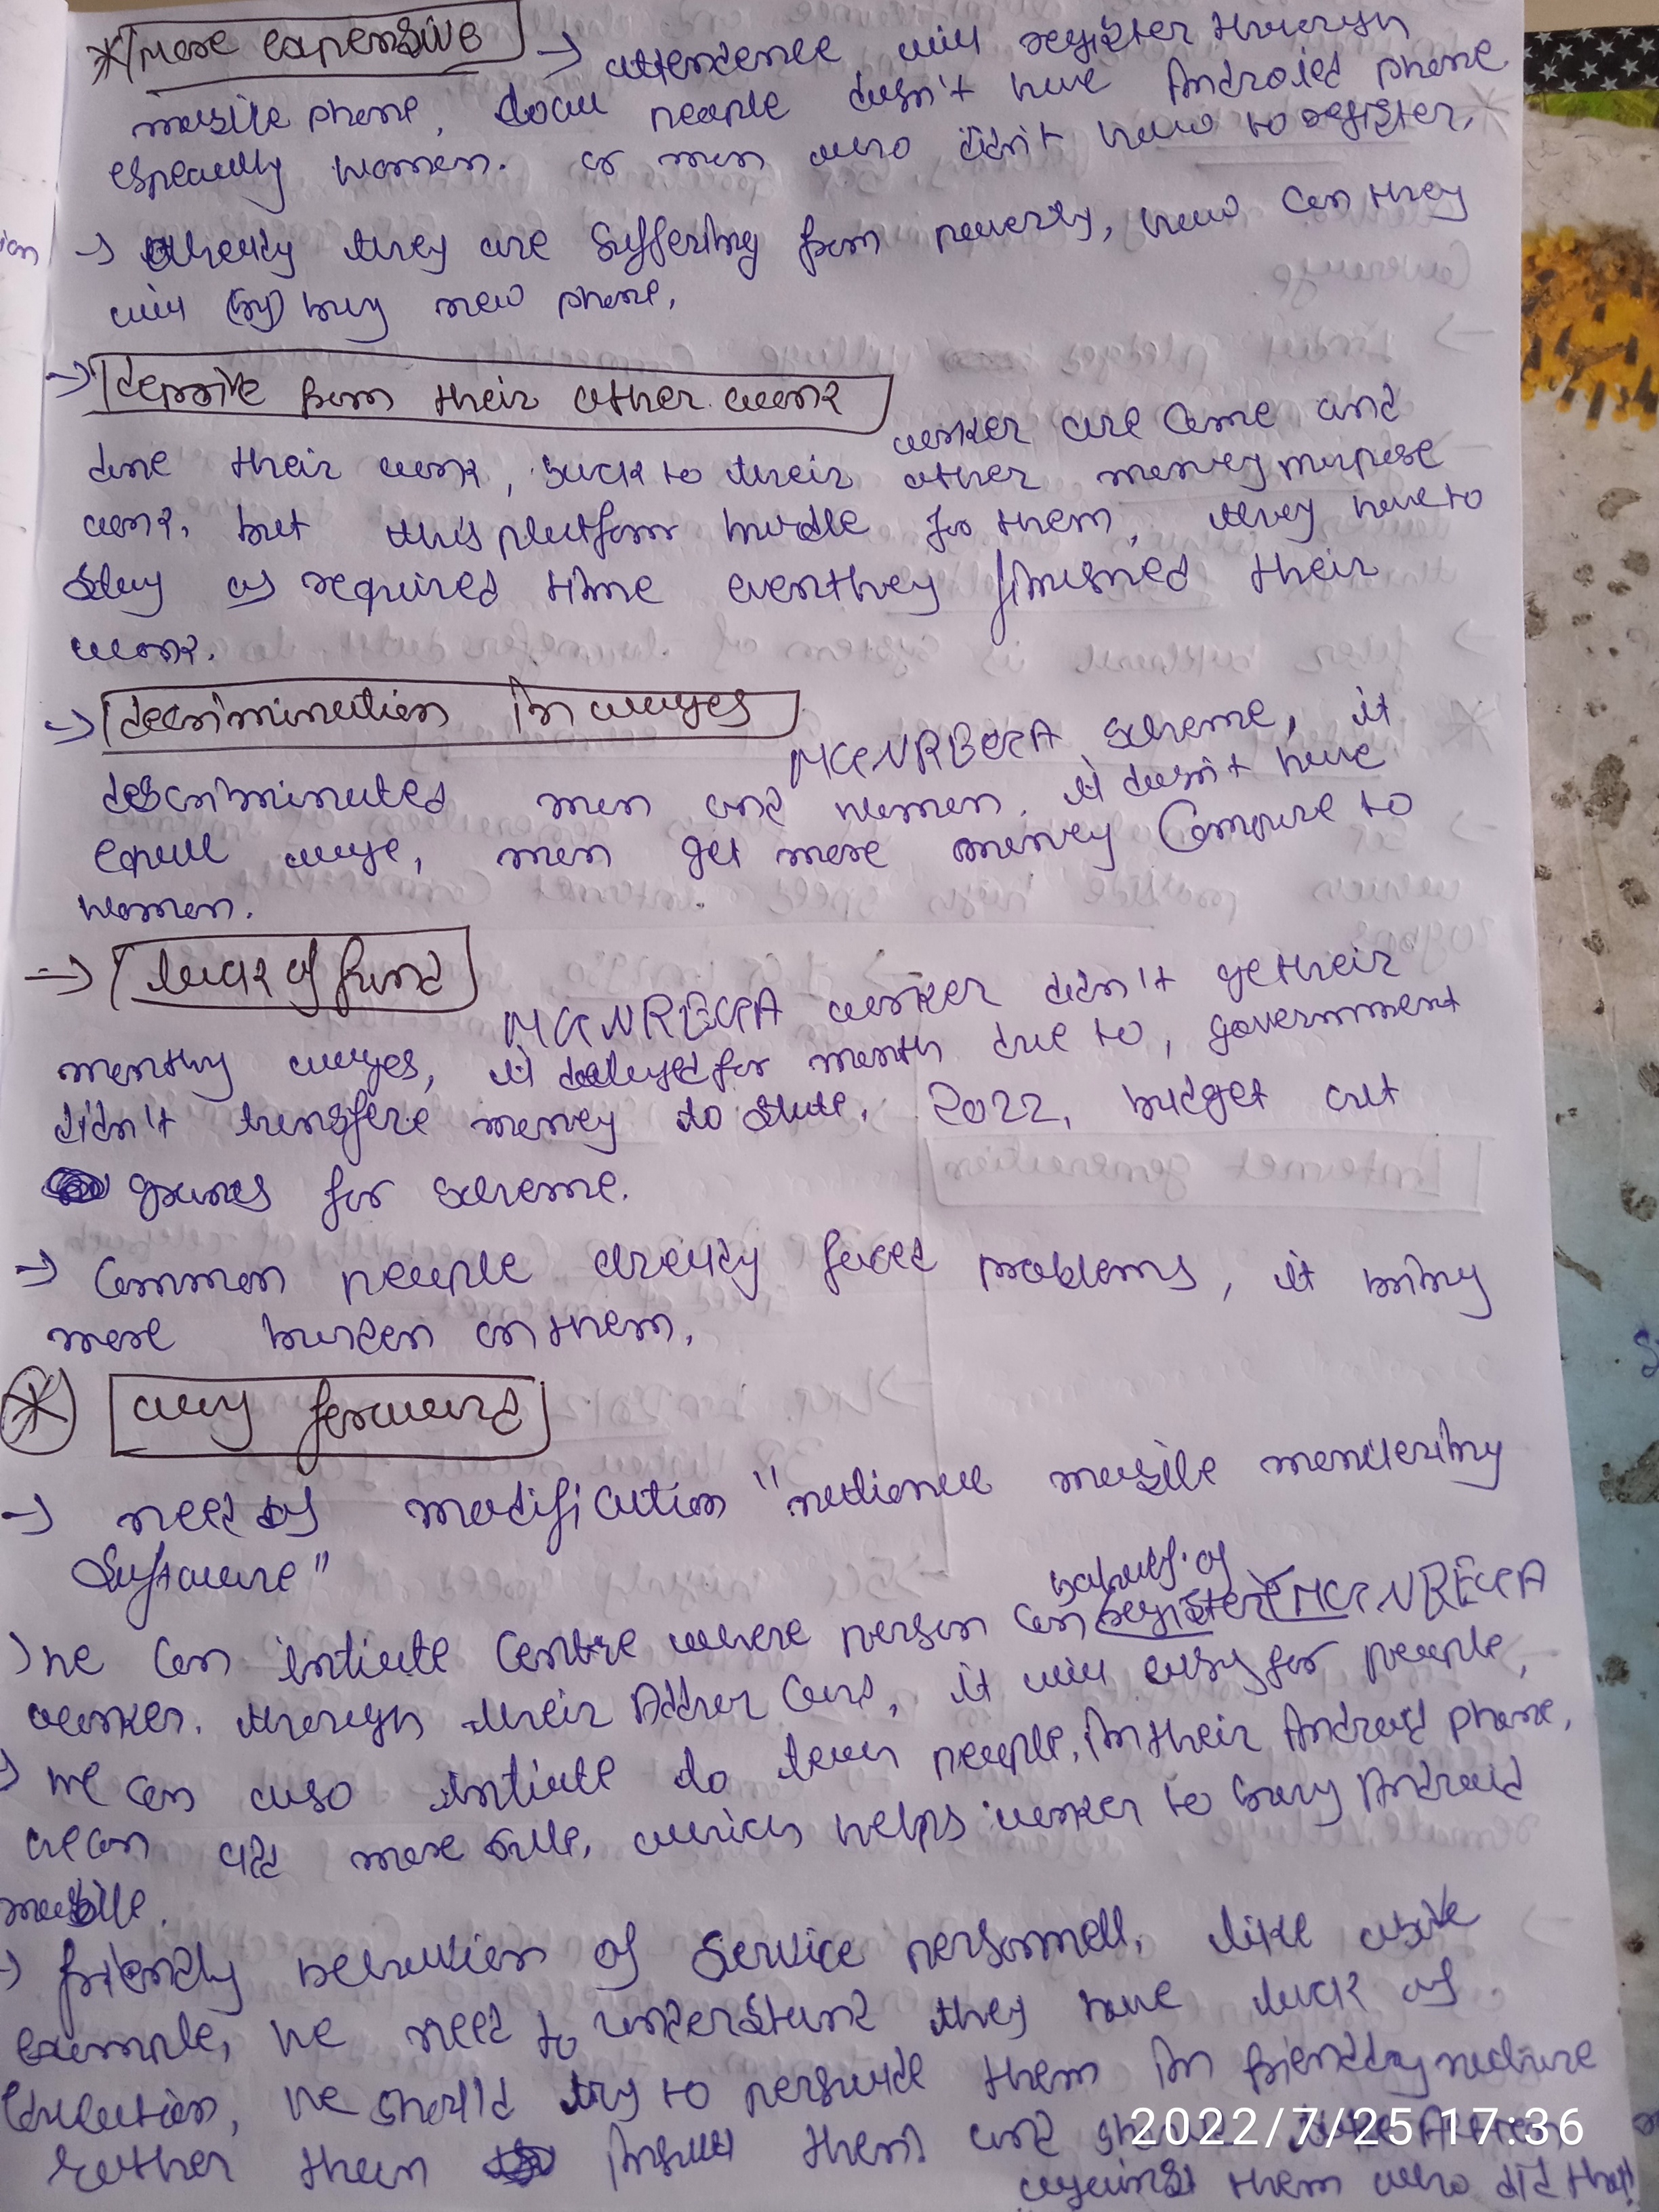 * more expensive → attendence will register through
mobile phone, local people dosn't have Androied phone
especially women. or men who didn't know to register.
→ Already they are suffering from poverty, how can they
will (by) buy new phone.
→ despite from their other work
worker are come and
done their work, back to their other money purpose
work, but this platform hurdle for them, they have to
stay as required time eventhey finished their
work.
→ decrimination in wages
MGNREGA scheme, it
descriminated men and women. it doesn't have
equall wage, men get more money compare to
women.
→ lack of fund
MGNREGA worker didn't getheir
monthy wages, it delayed for month due to, government
didn't transfere money to state. 2022, budget cut
for scheme.
→ Common people already faced problems, it bring
more burden on them.
* way forward
→ need of modification "national mobile monitering
Software"
behalf of
→ we can intiate centre where person can register MGNREGA
worker. through their Addhar Card, it will easy for people,
→ we can also intiate to people, in their Android phone,
we can add more which helps worker to buy Android
mobile.
→ friendly behavion of Service personnell. like
example, we need to understand they have lack of
Education, we should try to persuade them in friendly nature
rather than insult them and Action
against them who did that
2022/7/25 17:36